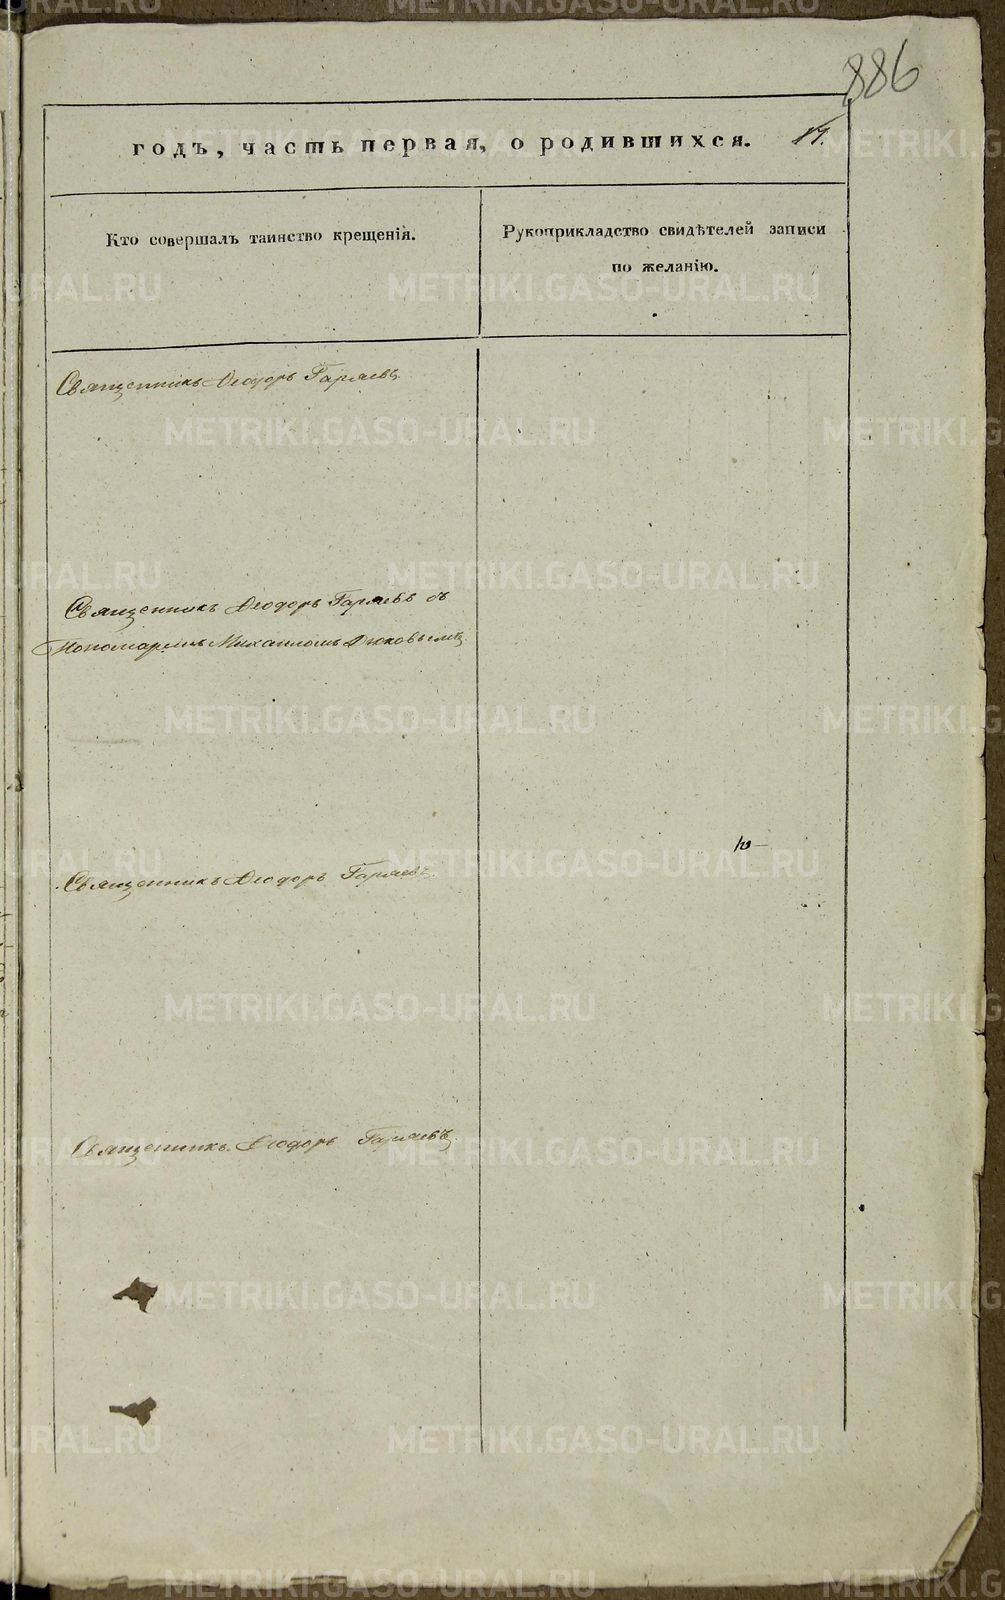 886
годъ, часть первая, о родившихся. 17.
Кто совершалъ таинство крещенія.
Рукоприкладство свидѣтелей записи
по желанію.
Священникъ Ѳеодоръ Гаряевъ.
Священникъ Ѳеодоръ Гаряевъ съ
Пономаремъ Михаиломъ Дюковымъ
Священникъ Ѳеодоръ Гаряевъ.
Священникъ Ѳеодоръ Гаряевъ.
METRIKI.GASO-URAL.RU